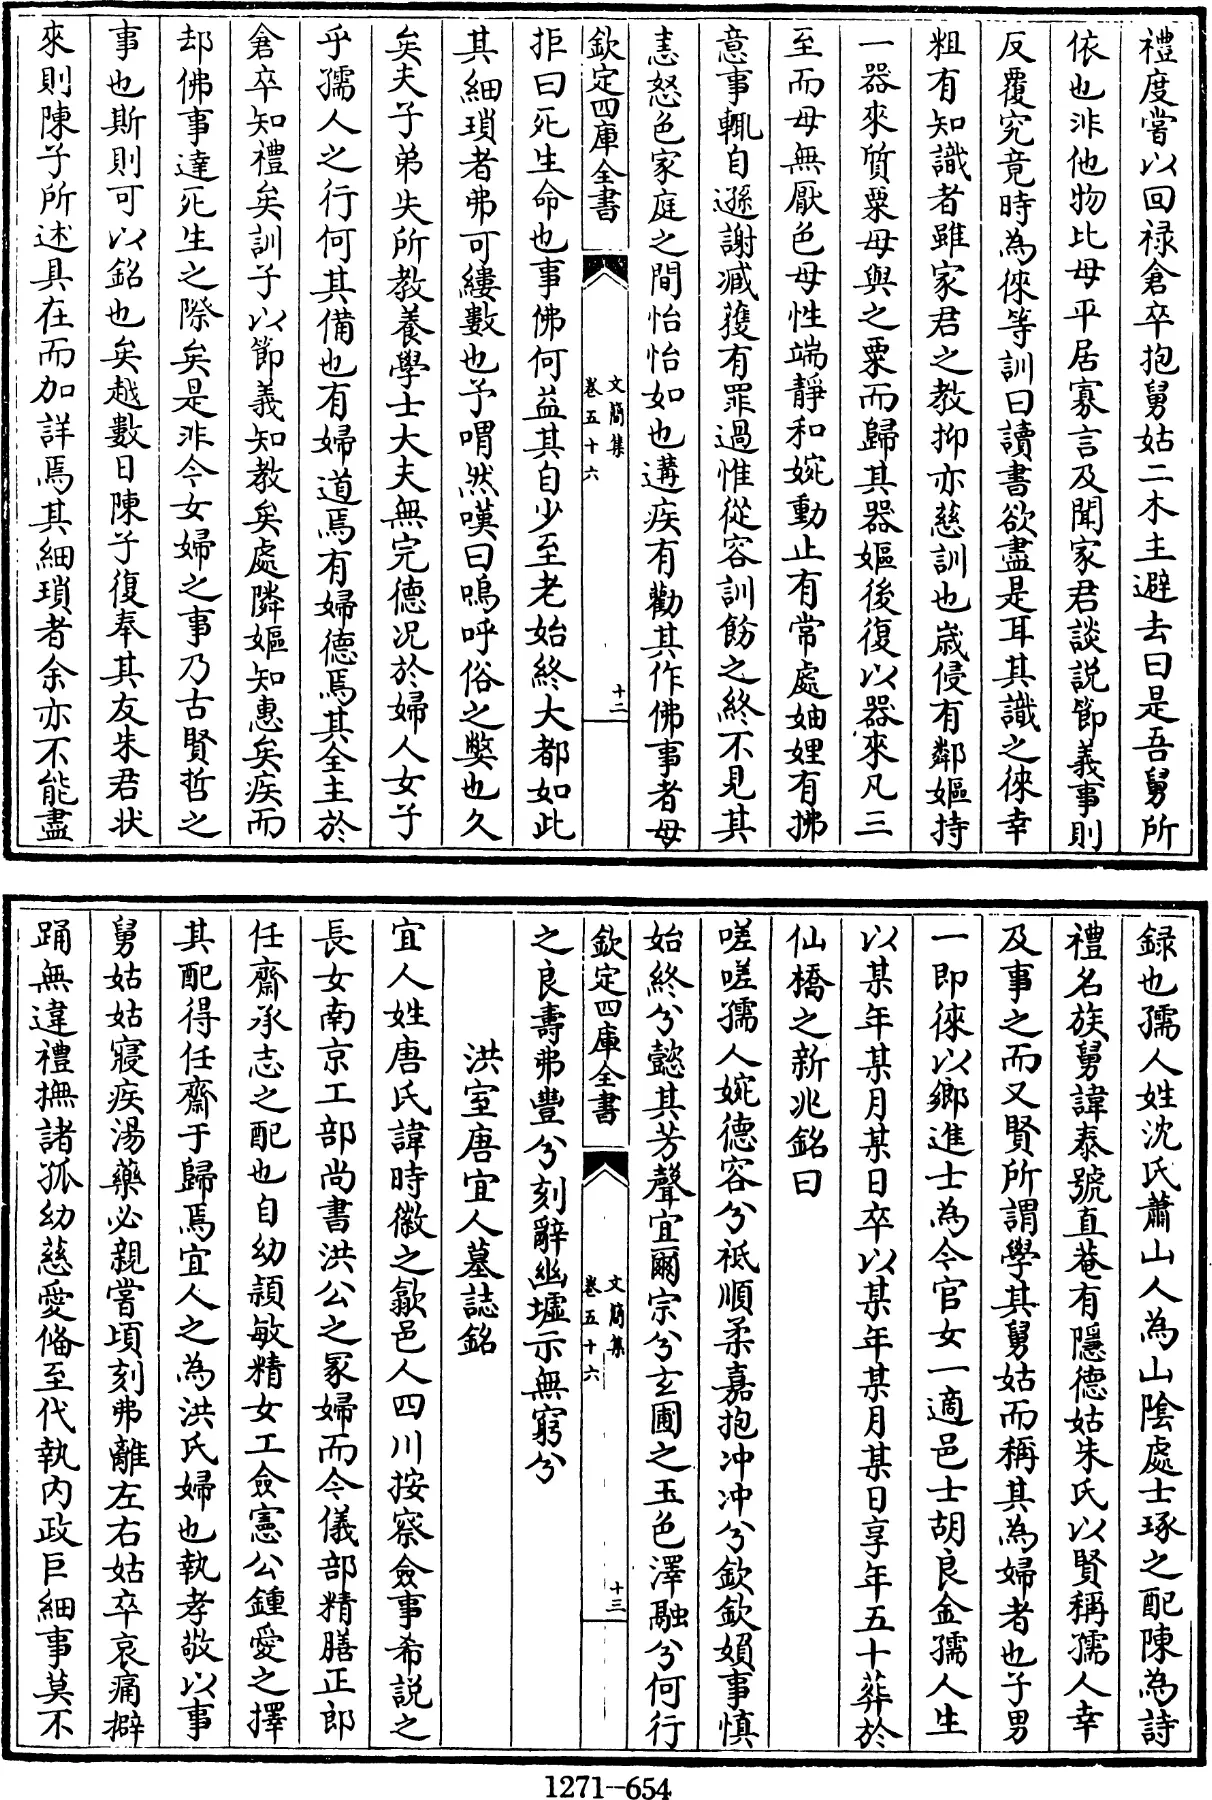 禮度嘗以回祿倉卒抱舅姑二木主避去曰是吾舅所
依也非他物比母平居寡言及聞家君談説節義事則
反覆究竟時為倈等訓曰讀書欲盡是耳其識之倈幸
粗有知識者雖家君之教抑亦慈訓也嵗侵有鄰嫗持
一器來質粟母與之粟而歸其器嫗後復以器來凡三
至而母無厭色母性端靜和婉動止有常處妯娌有拂
意事輒自遜謝臧獲有罪過惟從容訓飭之終不見其
恚怒色家庭之間怡怡如也遘疾有勸其作佛事者母
欽定四庫全書
文簡集
卷五十六
十二
拒曰死生命也事佛何益其自少至老始終大都如此
其細瑣者弗可縷數也予喟然嘆曰嗚呼俗之獘也久
矣夫子弟失所教養學士大夫無完德况於婦人女子
乎孺人之行何其備也有婦道焉有婦德焉其全主於
倉卒知禮矣訓子以節義知教矣處隣嫗知惠矣疾而
却佛事達死生之際矣是非今女婦之事乃古賢哲之
事也斯則可以銘也矣越數日陳子復奉其友朱君状
來則陳子所述具在而加詳焉其細瑣者余亦不能盡
録也孺人姓沈氏蕭山人為山隂處士琢之配陳為詩
禮名族舅諱泰號直菴有隱德姑朱氏以賢稱孺人幸
及事之而又賢所謂學其舅姑而稱其為婦者也子男
一即倈以鄉進士為今官女一適邑士胡良金孺人生
以某年某月某日卒以某年某月某日享年五十葬於
仙橋之新兆銘曰
嗟嗟孺人婉德容兮祗順柔嘉抱冲冲兮欽欽嬪事慎
始終兮懿其芳聲宜爾宗兮玄圃之玉色澤融兮何行
欽定四庫全書
文簡集
卷五十六
十三
之良壽弗豐兮刻辭幽墟示無窮兮
洪室唐宜人墓誌銘
宜人姓唐氏諱時徽之歙邑人四川按察僉事希説之
長女南京工部尚書洪公之冢婦而今儀部精膳正郎
任齋承志之配也自幼頴敏精女工僉憲公鍾愛之擇
其配得任齋于歸焉宜人之為洪氏婦也執孝敬以事
舅姑姑寢疾湯藥必親嘗頃刻弗離左右姑卒哀痛擗
踊無違禮撫諸孤幼慈愛備至代執内政巨細事莫不
1271--654